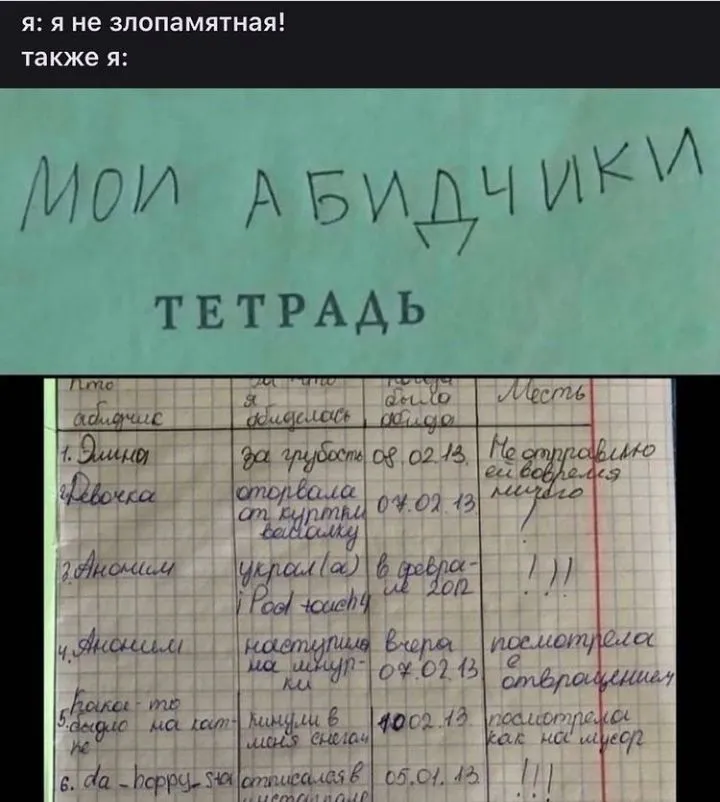 я: я не злопамятная!
также я:
МОИ АБИДЧИКИ
ТЕТРАДЬ
Кто абидчик | за что я обиделась | когда было абидо | Месть
1. Элина | за грубость | 08.02.13. | Не отправлю ей вовремя ничего
2. Девочка | оторвала от куртки | 07.02.13 | !
3. Аноним | украл(а) iPod touch 4 | в феврале 2012 | !!!
4. Аноним | наступила на шнурки | вчера 07.02.13 | посмотрела с отвращением
5. Какое-то быдло на кат-ке | кинули в меня снегом | 10 02.13 | посмотрела как на мусор
6. da_happy_sta | отписался в | 05.01.13 | !!!